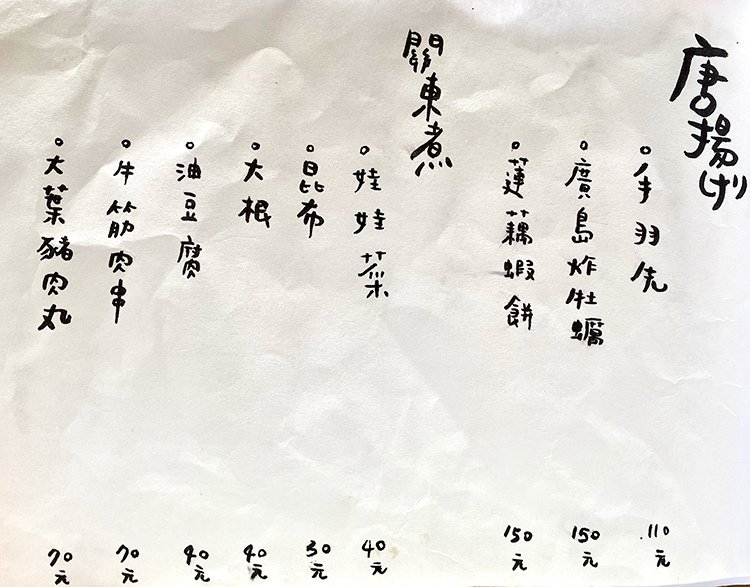 唐揚げ
手羽先 110元
廣島炸牡蠣 150元
蓮藕蝦餅 150元
關東煮
娃娃菜 40元
昆布 30元
大根 40元
油豆腐 40元
牛筋肉串 70元
大葉豬肉丸 70元